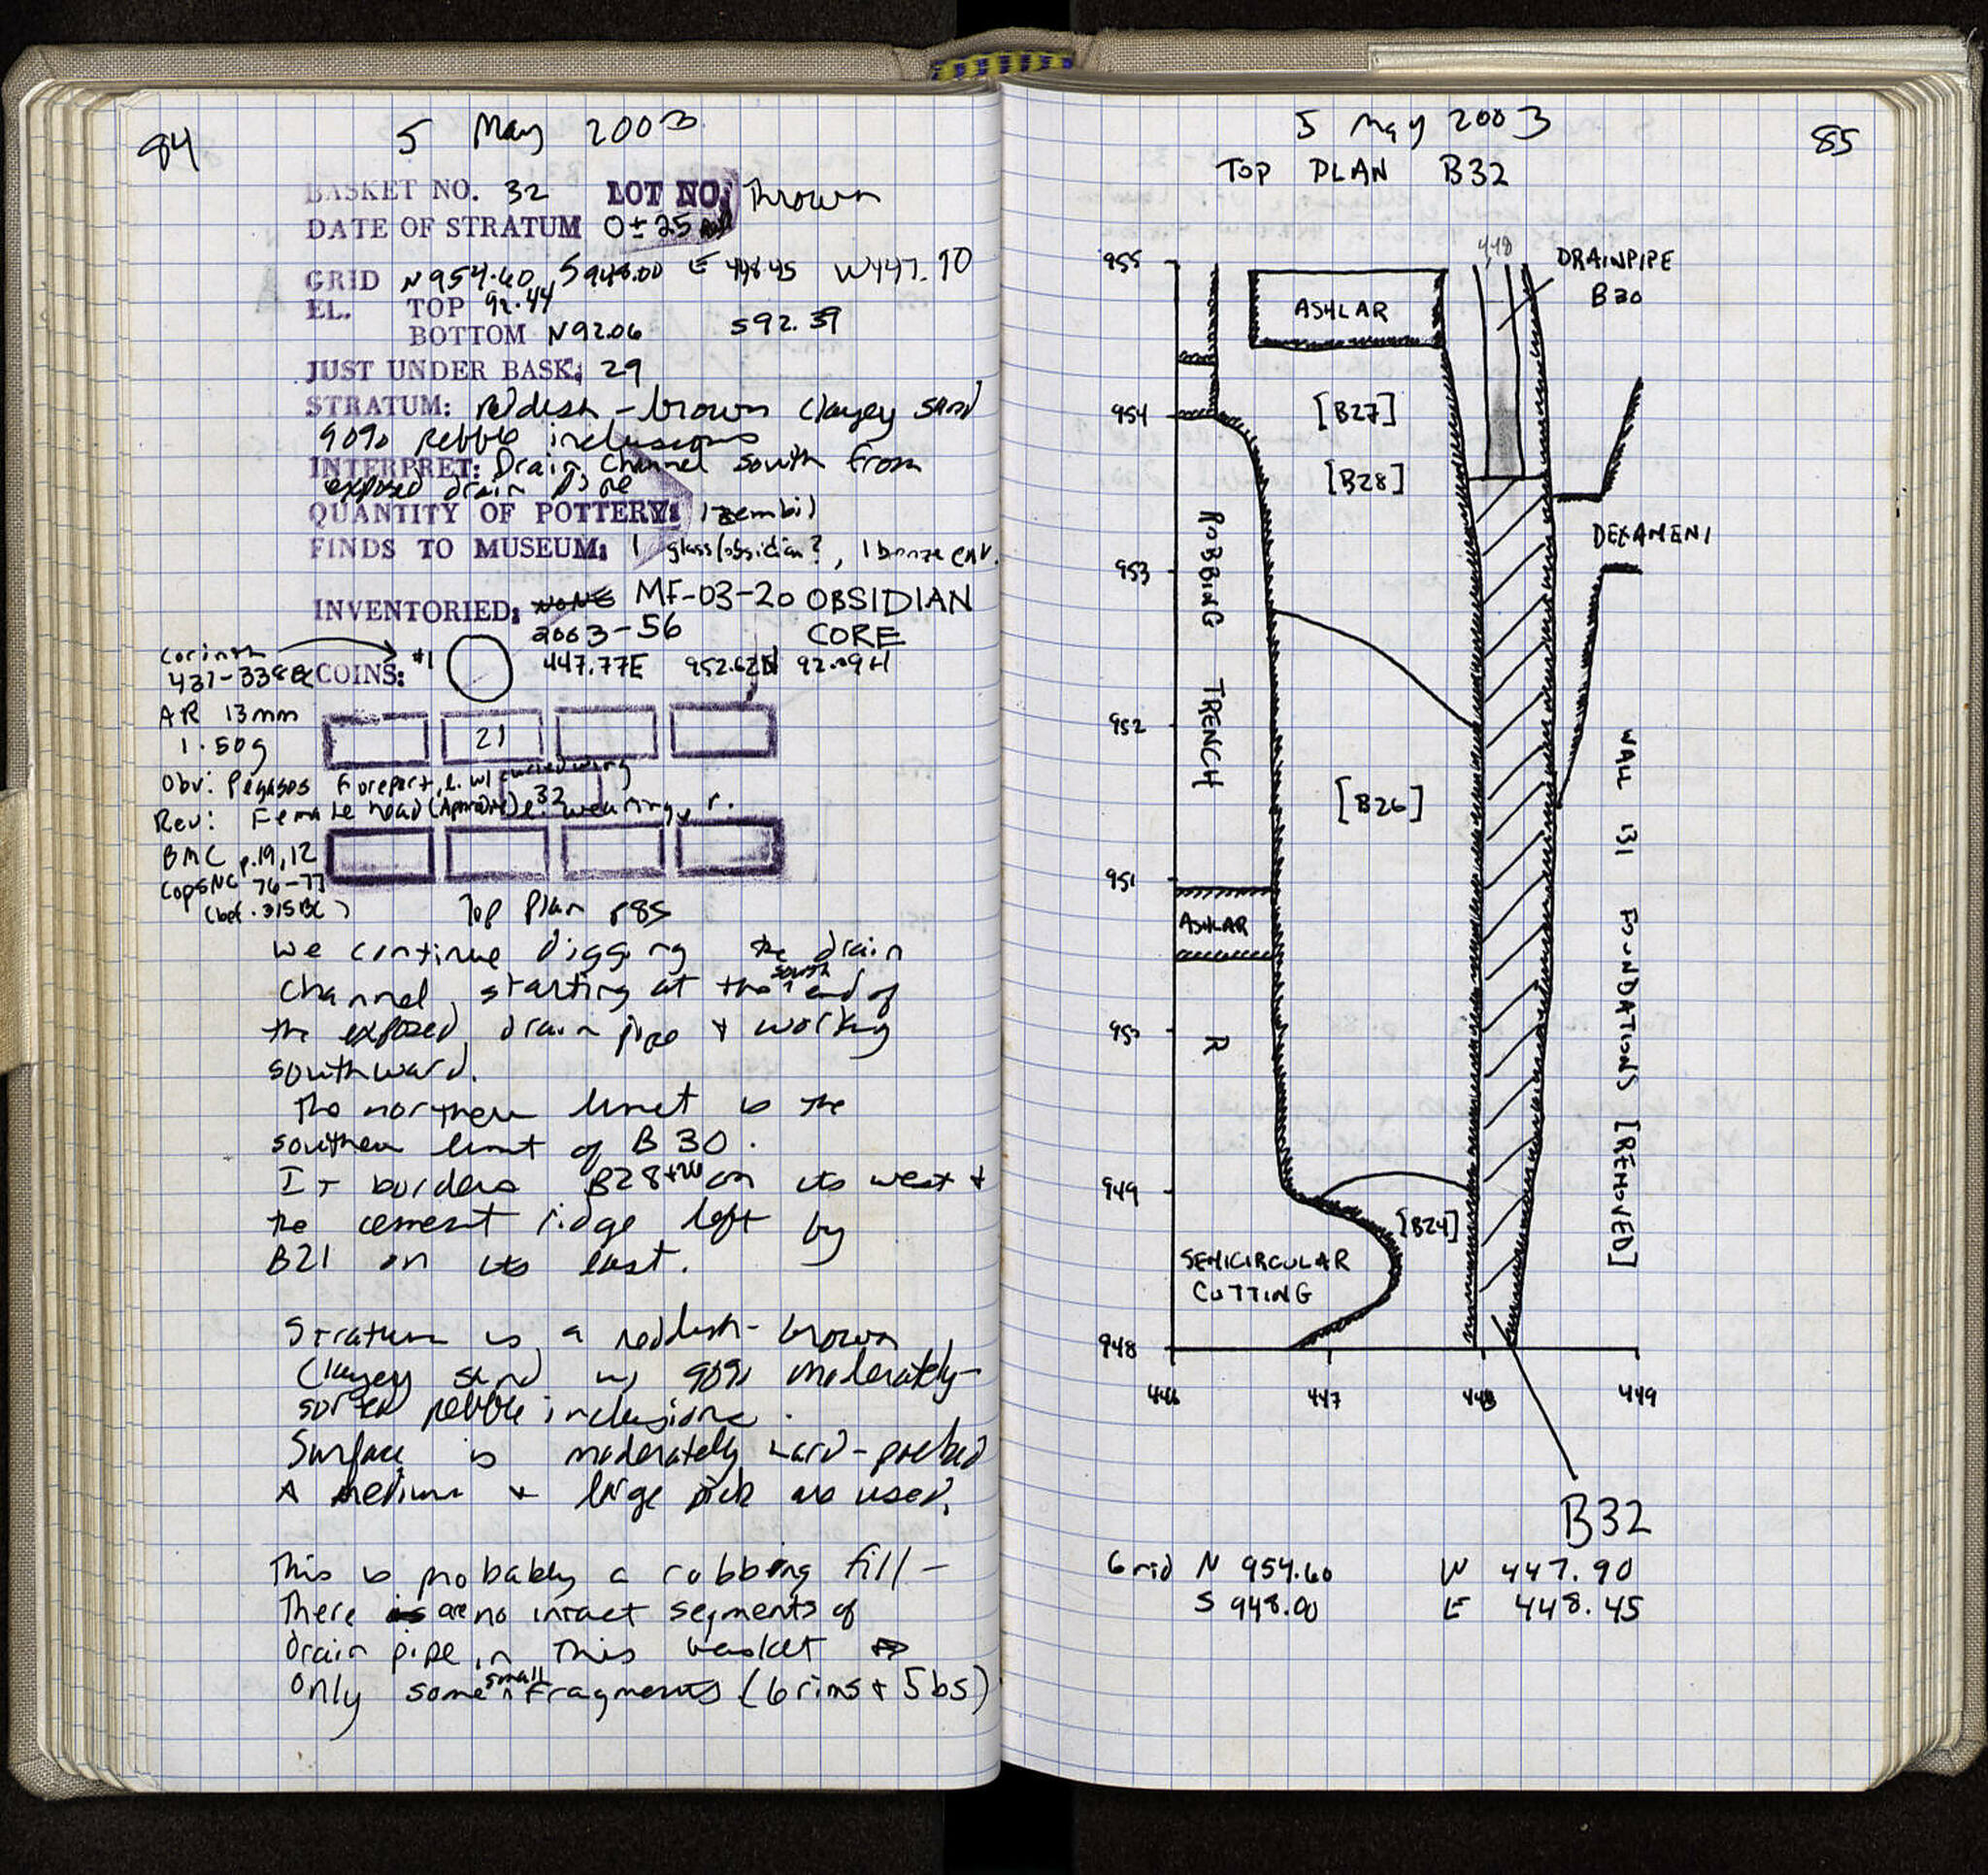 84
5 May 2003
BASKET NO. 32 LOT NO. Thrown
DATE OF STRATUM 0±25
GRID N954.60, S948.00 E 448.45 W447.90
EL. TOP 92.44
BOTTOM N92.06 S92.39
JUST UNDER BASK: 29
STRATUM: reddish-brown clayey sand
90% pebble inclusions
INTERPRET: Drain channel south from
exposed drain pipe
QUANTITY OF POTTERY: 1 zembil
FINDS TO MUSEUM: 1 glass/obsidian?, 1 bronze env.
INVENTORIED: NONE MF-03-20 OBSIDIAN
2003-56 CORE
Corinth
431-338BC COINS: #1 447.77E 952.62N 92.09H
AR 13mm
1.50g
21
Obv: Pegasos Forepart, l. w/ curled wing
32
Rev: Female head (Aphrodite) wearing, r.
BMC p.19, 12
CopSNG 76-77
(bef. 315BC)
Top Plan p85
We continue digging the drain
channel, starting at the south end of
the exposed drain pipe + working
southward.
The northern limit is the
southern limit of B30.
It borders B28+26 on its west +
the cement ridge left by
B21 on its east.
Stratum is a reddish-brown
clayey sand w/ 90% moderately-
sorted pebble inclusions.
Surface is moderately hard-packed
A medium + large pick are used.
This is probably a robbing fill -
There is are no intact segments of
drain pipe in this basket
only some small fragments (6 rims + 5 bs)
5 May 2003
85
TOP PLAN B32
448
955
DRAINPIPE
B30
ASHLAR
954
[B27]
[B28]
ROBBING TRENCH
DEXAMENI
953
952
WALL 131 FOUNDATIONS [REMOVED]
[B26]
951
ASHLAR
950
R
949
[B24]
SEMICIRCULAR
CUTTING
948
446 447 448 449
B32
Grid N 954.60 W 447.90
S 948.00 E 448.45